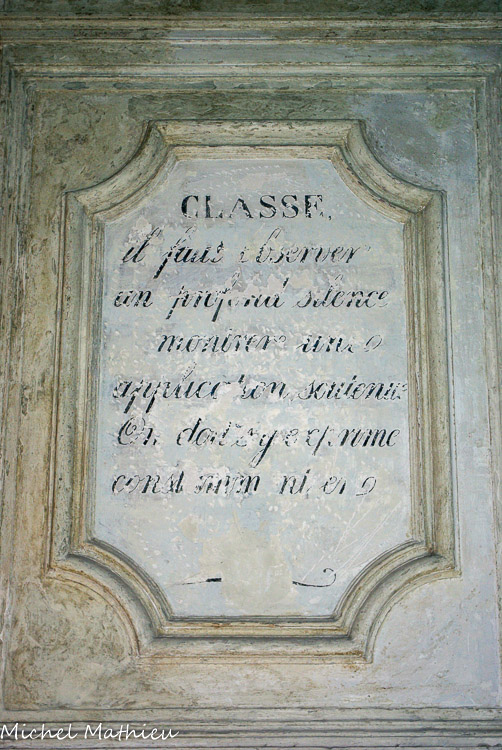 CLASSE,
il faut observer
un profond silence
montrere une
application soutenue
On doit s'y exprime
Michel Mathieu